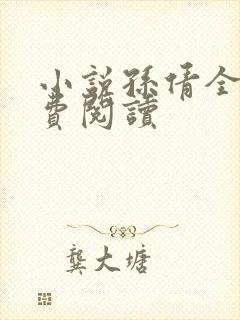 小説孫倩全
費閱讀
龔大塘